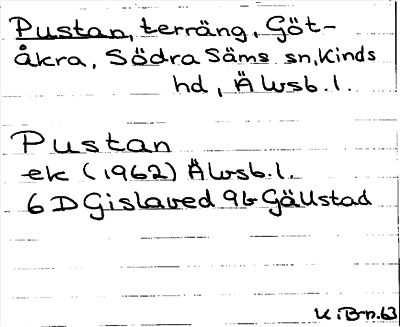 Pustan, terräng, Göt-
åkra, Södra Säms sn, Kinds
hd, Älvsb. l.
Pustan
ek (1962) Älvsb. l.
6 D Gislaved 9b Gällstad
K. Brn. 63